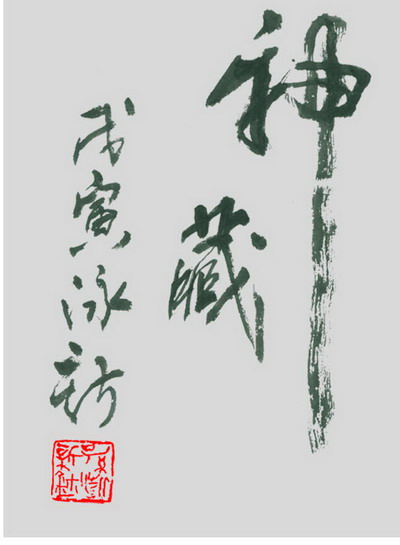 神藏
戊寅泳新